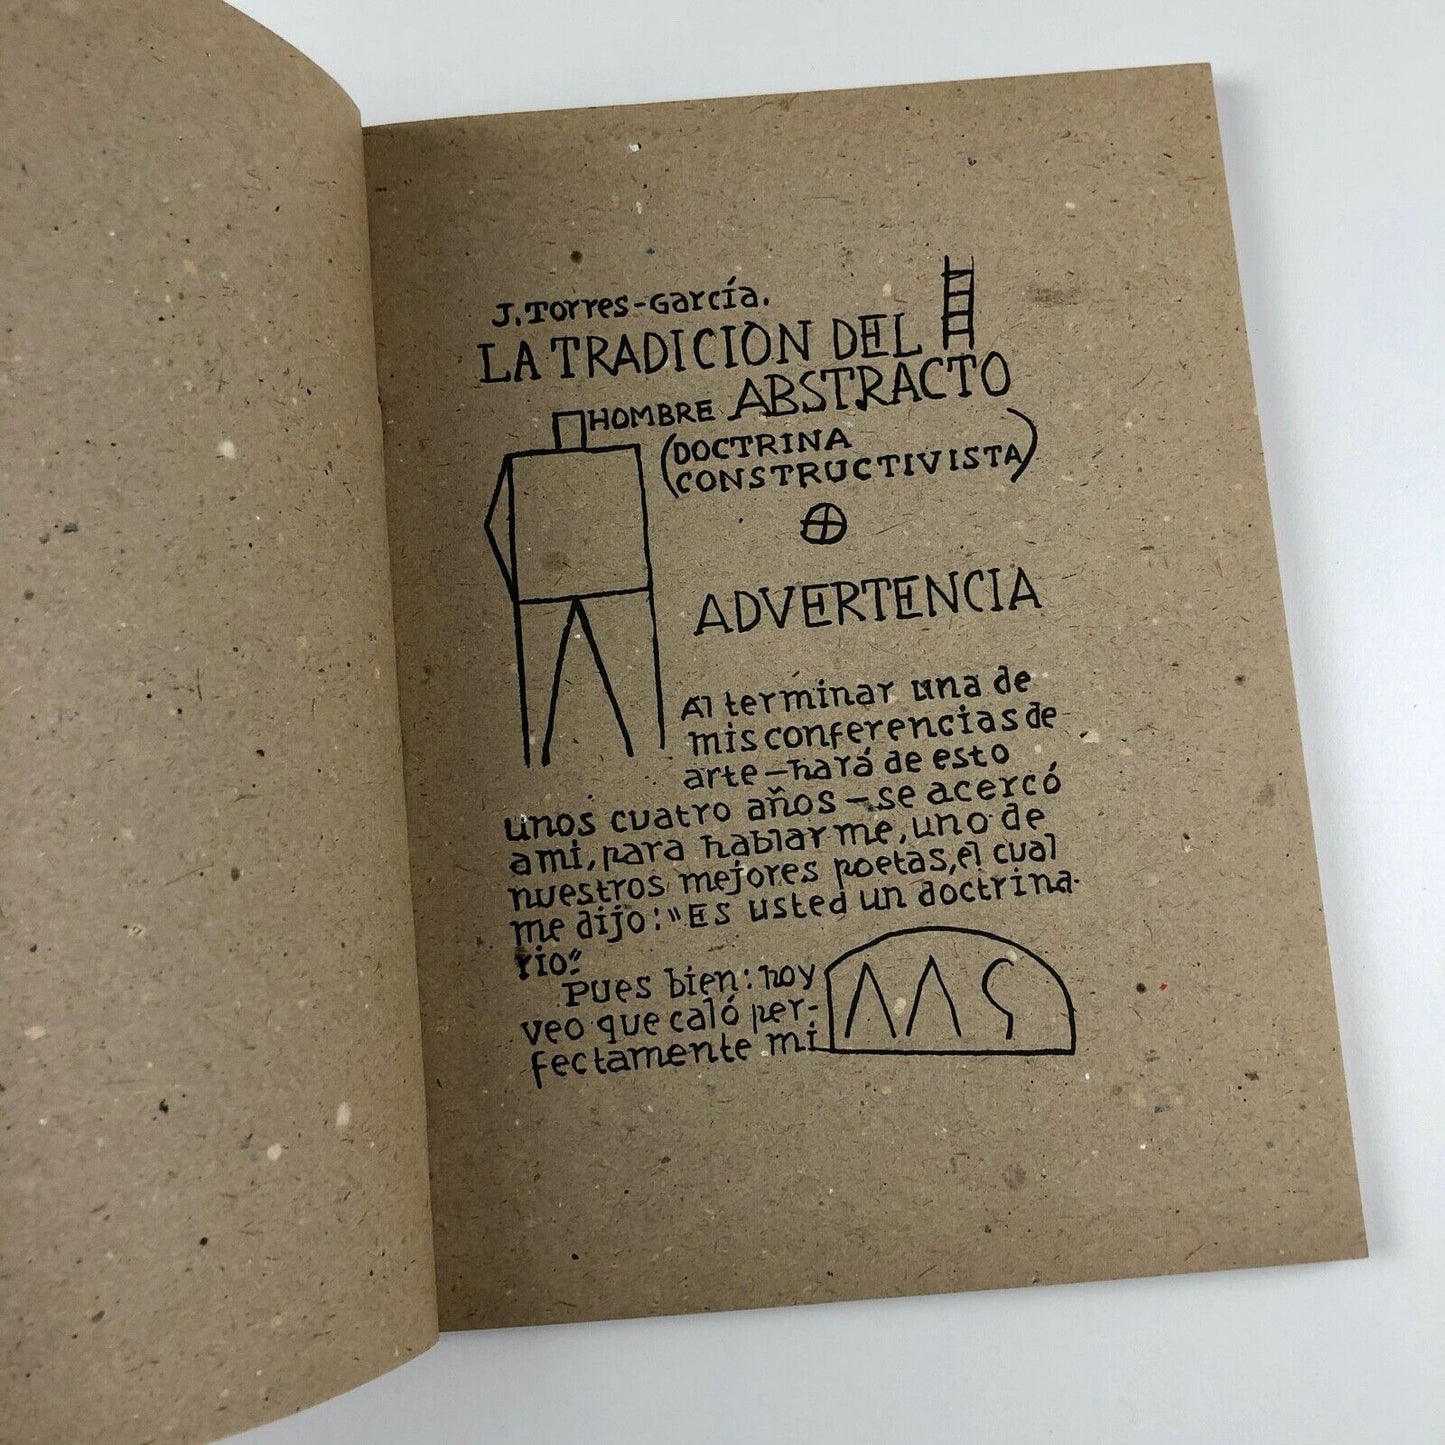 J. Torres-García.
LA TRADICION DEL
HOMBRE ABSTRACTO
(DOCTRINA
CONSTRUCTIVISTA)
ADVERTENCIA
Al terminar una de
mis conferencias de
arte—hará de esto
unos cuatro años—se acercó
a mi, para hablarme, uno de
nuestros mejores poetas, el cual
me dijo: "Es usted un doctrina-
rio."
Pues bien: hoy
veo que caló per-
fectamente mi
AAS